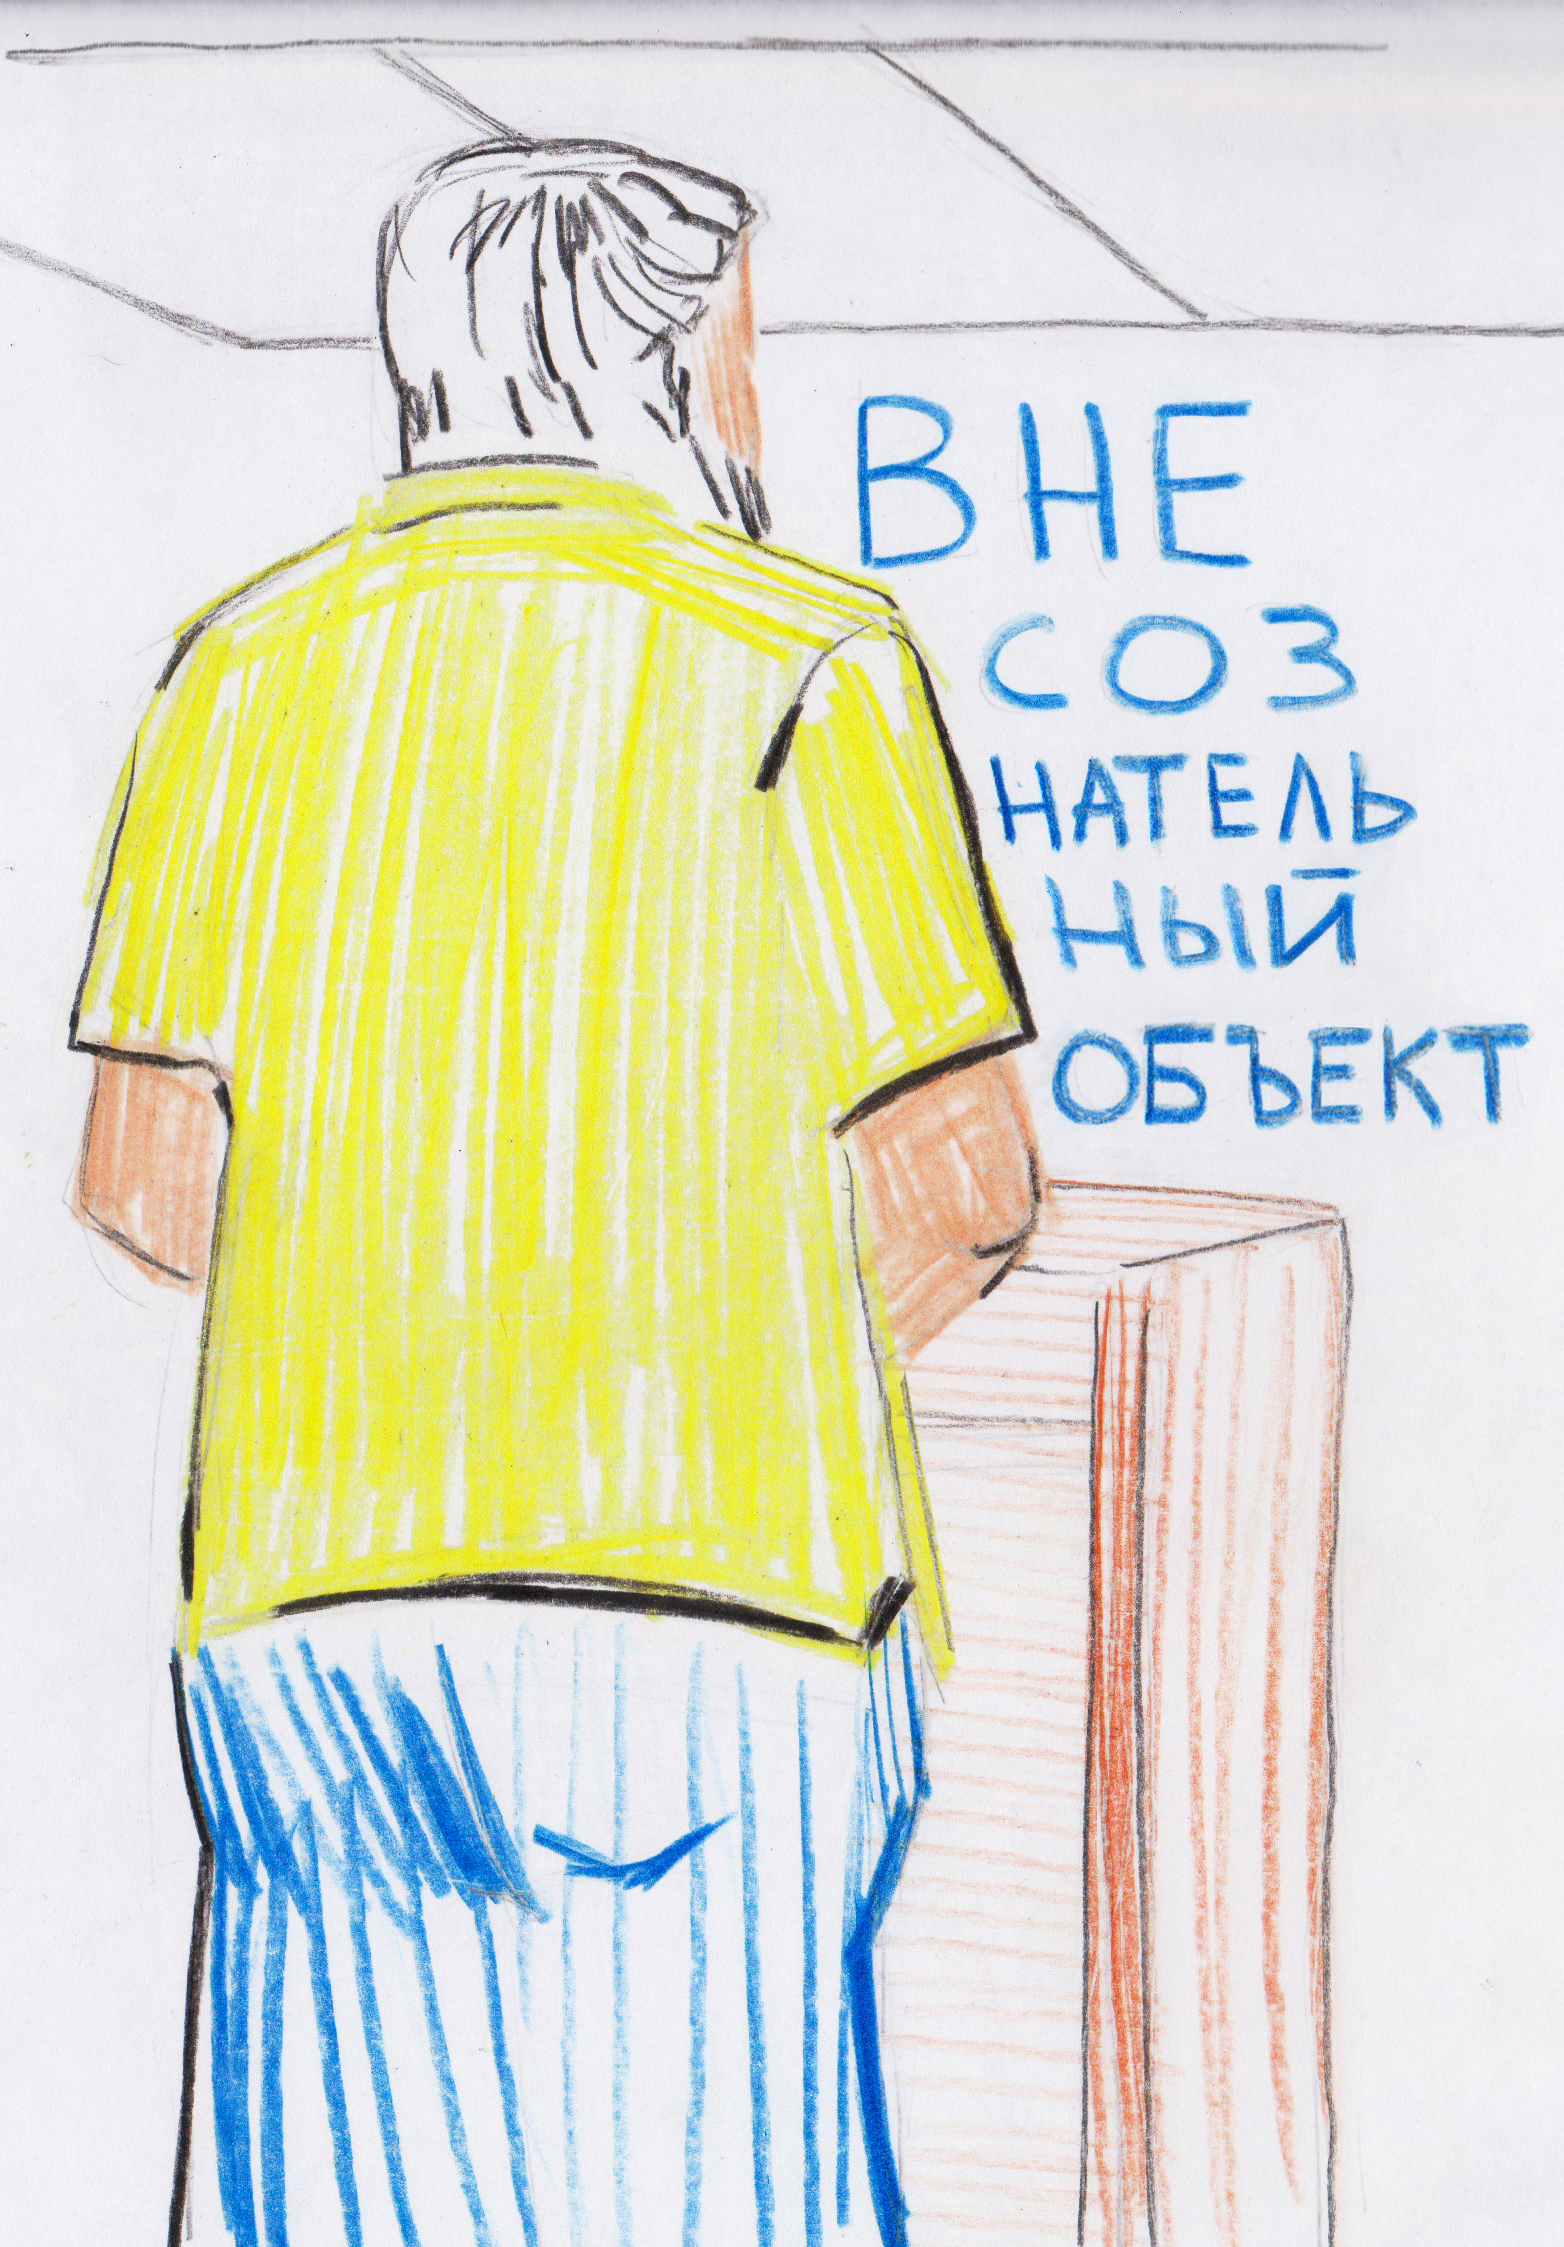 ВНЕ
СОЗ
НАТЕЛЬ
НЫЙ
ОБЪЕКТ